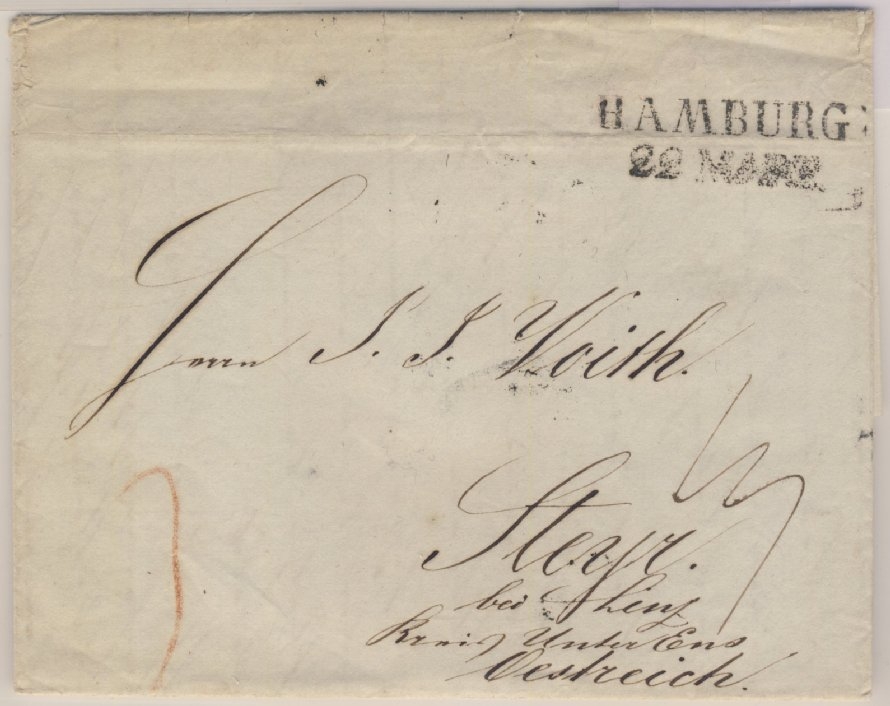 HAMBURG
22 MÄRZ
Herrn J. J. Voith.
Steyr.
bei Linz
Kreis Unter Ens
Oestreich.